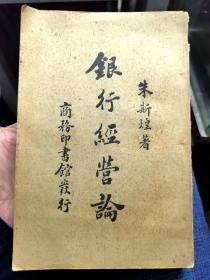 朱斯煌著
銀行經營論
商務印書館發行